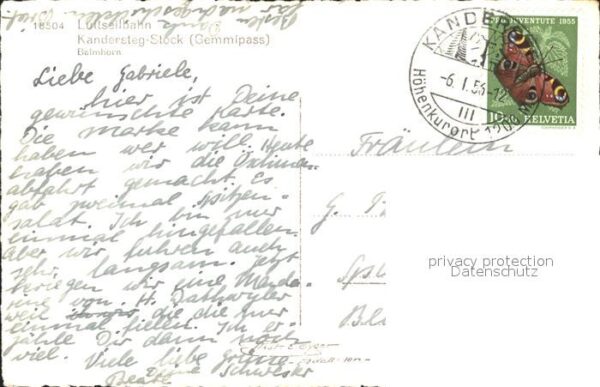 18504 Luftseilbahn
Kandersteg-Stock (Gemmipass)
Balmhorn
Liebe Gabriele,
hier ist Deine
gewünschte Karte.
Die Marke kann
haben wer will. Heute
haben wir die
abfahrt gemacht. Es
gab zweimal Spitzen-
salat. Ich bin nur
einmal hingefallen
aber wir fuhren auch
sehr langsam. Jetzt
kriegen wir eine
von H.
weil die nur
einmal fielen. Ich er-
zähle Dir dann noch
viel. Viele liebe Grüsse
Deine Schwester
Beate
PRO JUVENTUTE 1955
KANDERSTEG
-6.1.56-12
III
Höhenkurort 1200 M
10
HELVETIA
Fräulein
G.
privacy protection
Datenschutz